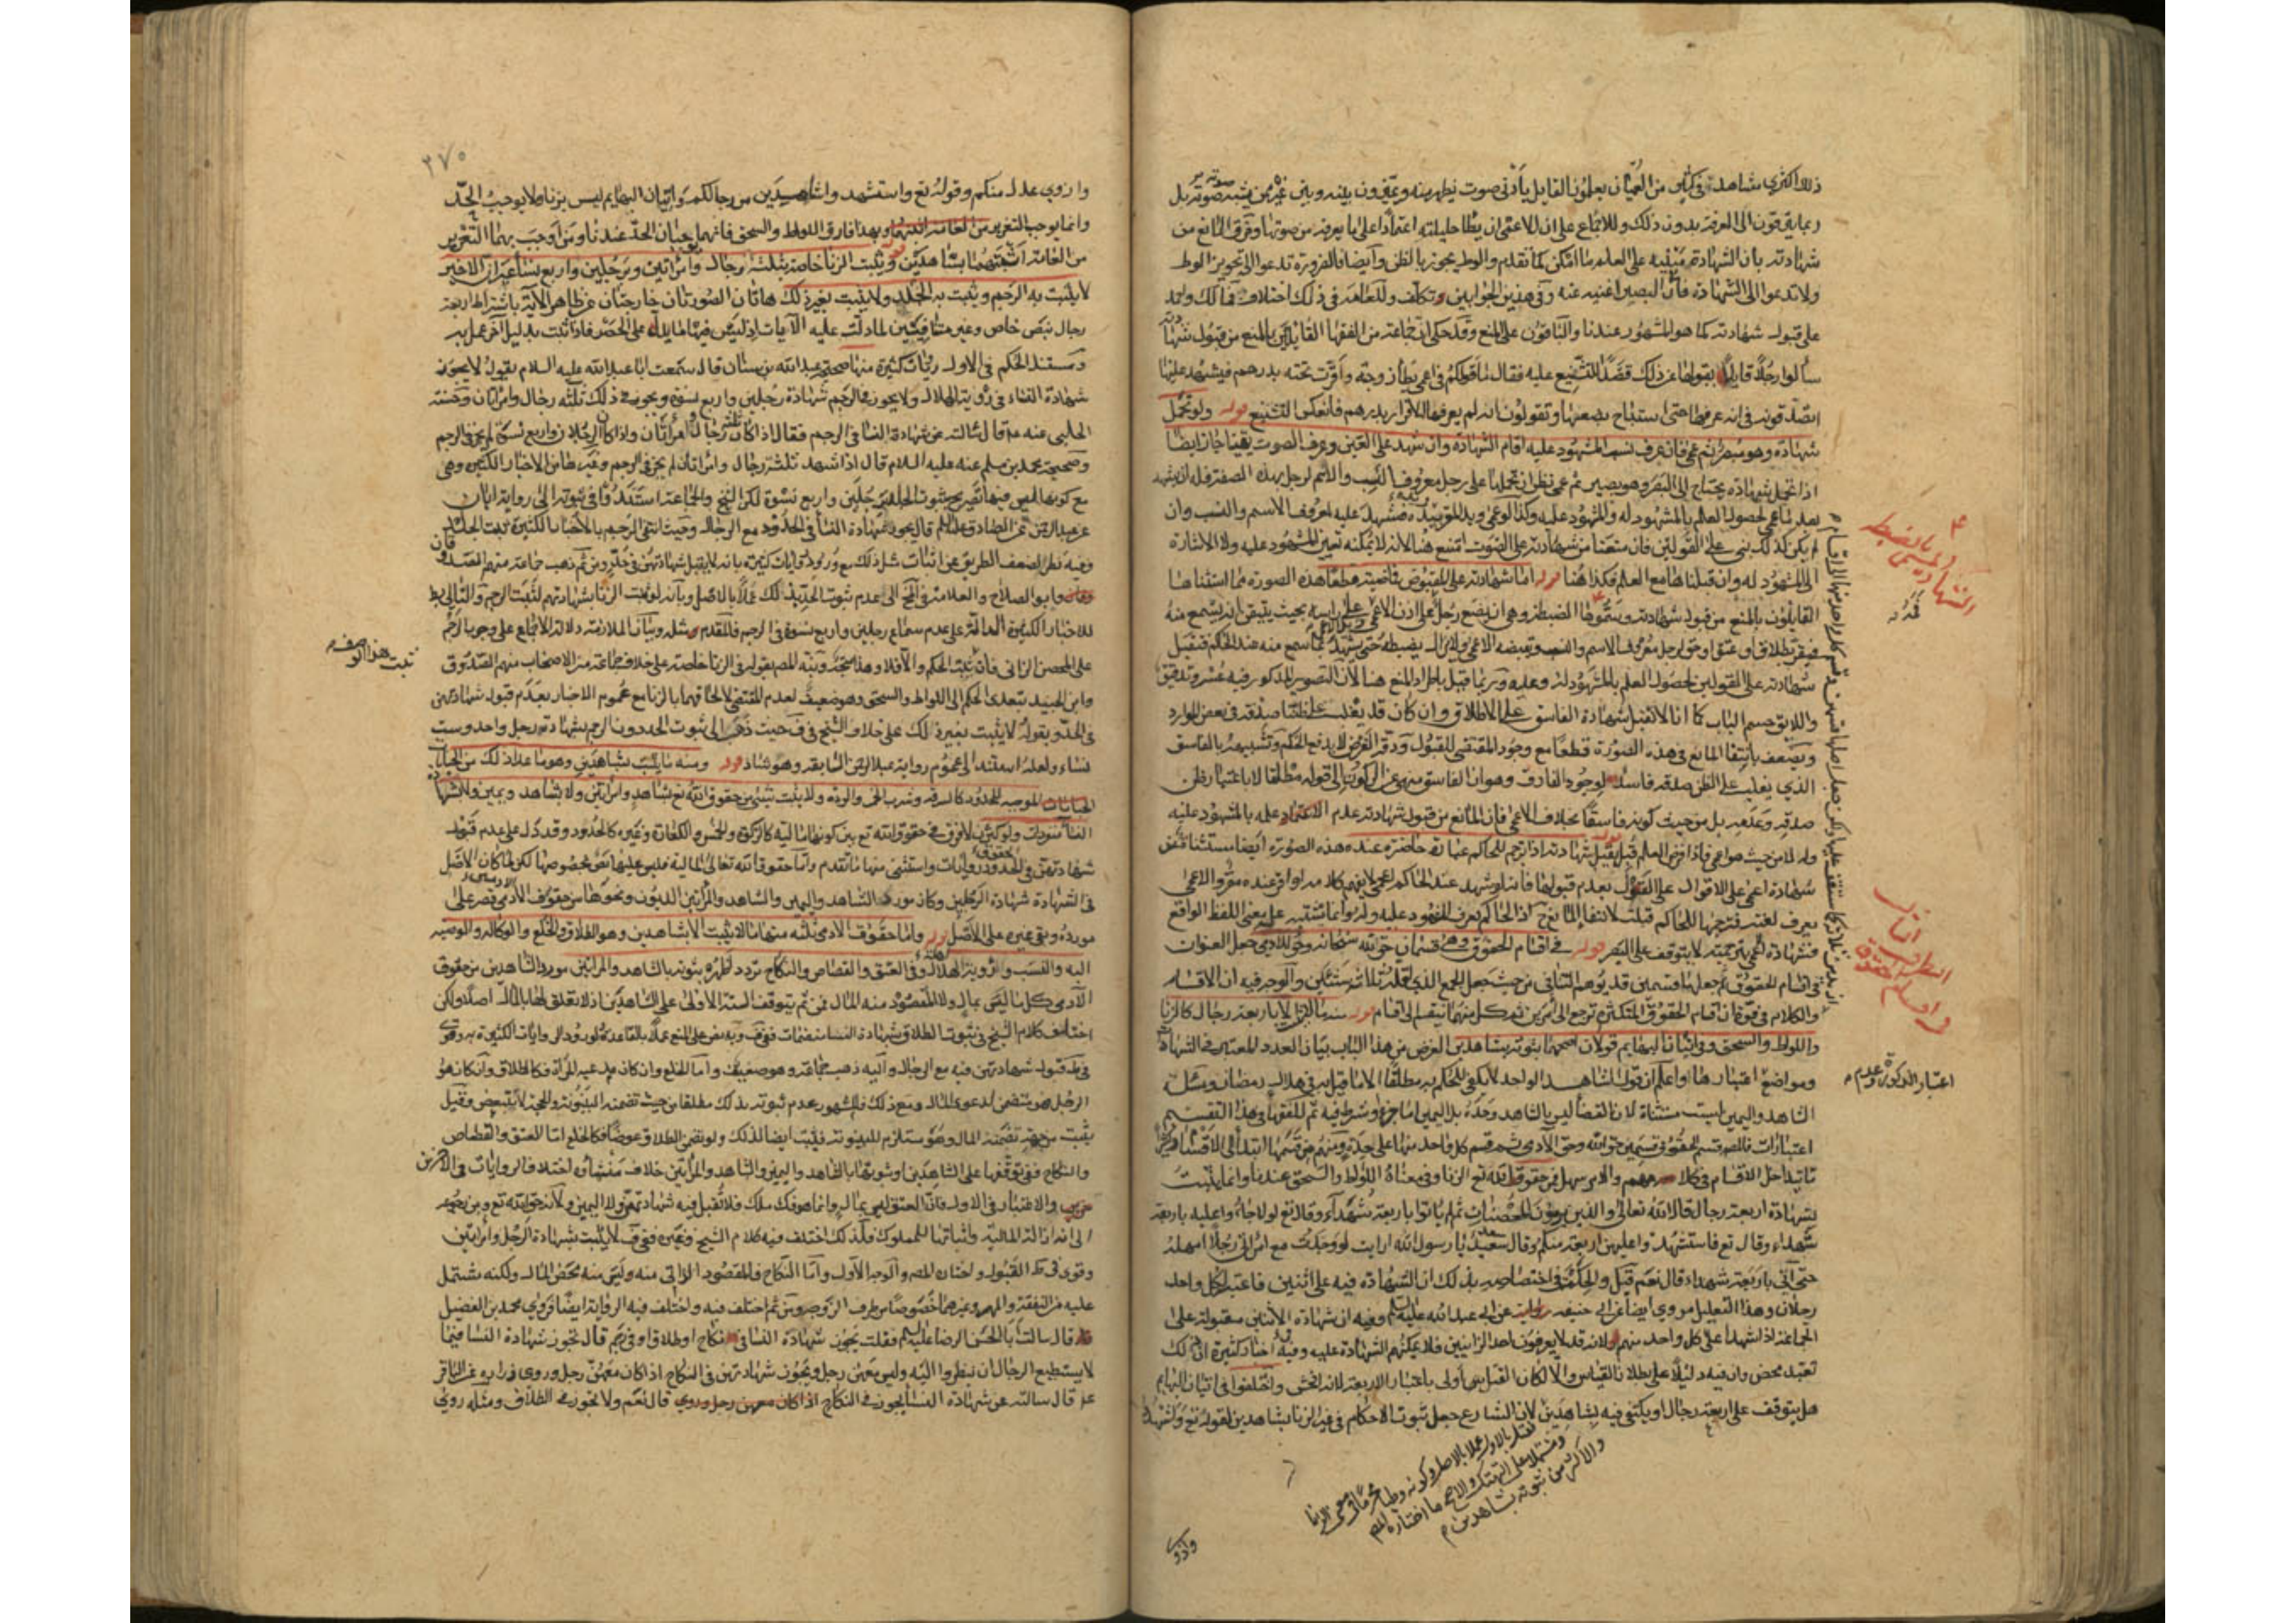 ذلك اكثري شاهد في كثير من العميان يعلمون القايل بادنى صوت يظهر منه ويميزون بينه وبين غيره ممن يشبه صوته بل
ربما يترقون الى المعرفة بدون ذلك وللاجماع على ان الاعمى ان يطأ حليلته اعتمادا على ما يعرفه من صوتها وفرق المانع من
شهادته بان الشهادة مبنية على العلم ما امكن كما تقدم والوطي يجوز بالظن وايضا فالضرورة تدعو الى تجويز الوطي
ولا تدعو الى الشهادة فان البصير اغنيه عنه وفي هذين الجوابين تكلف وللعامه في ذلك اختلاف فمالك واحمد
على قبول شهادته كما هو المشهور عندنا والباقون على المنع وقد حكي ان جماعة من الفقها القايلين بالمنع من قبول شهادته
سألوا رجلا قايلا بقبولها عن ذلك قصدا للتشنيع عليه فقال ما قولكم في اعمى يطأ زوجته واقرت تحته بدرهم فيشهد عليها
اتصدقونه في انه عرفها حتى استباح بضعها وتقولون انه لم يعرفها للاقرار بدرهم فانعكس التشنيع قوله ولو تحمل
شهادة وهو مبصر ثم عمي فان عرف نسب المشهود عليه اقام الشهادة وان شهد على العين وعرف الصوت يقينا جاز ايضا
اذا تحمل شهادة يحتاج الى البصر وهو بصير ثم عمي نظر ان تحملها على رجل معروف النسب والاسم لرجل بهذه الصفة فله ان يشهد
بعد ما عمي لحصول العلم بالمشهود له والمشهود عليه وكذا لو عمي ويد المقر بيده فشهد عليه لمعروف الاسم والنسب وان
لم يكن كذلك بني على القولين فان منعنا من شهادته على الصوت امتنع هنا لانه لا يمكنه تعيين المشهود عليه ولا الاشارة
الى المشهود له وان قبلناها مع العلم فكذا هنا قوله اما شهادته على المقبوض فماضية قطعا هذه الصورة مما استثناها
القايلون بالمنع من قبول شهادته وسموها الضبطة وهي ان يضع رجل على اذن الاعمى
فيقر بطلاق او عتق او حق لرجل معروف الاسم والنسب ويقبضه الاعمى ولا يزال يضبطه حتى يشهد بما سمع منه عند الحاكم فتقبل
شهادته على القولين لحصول العلم بالمشهود له وعليه وربما قيل باطراد المنع هنا لان التصوير المذكور فيه عسر وتدقيق
واللايق حسم الباب كما انا لا نقبل شهادة الفاسق على الاطلاق وان كان قد يغلب على ظننا صدقه في بعض الموارد
ويضعف بانتفا المانع في هذه الصورة قطعا مع وجود المقتضى للقبول ودقة الفرض لا يدفع الحكم وتشبيهه بالفاسق
الذي يغلب على الظن صدقه فاسد لوجود الفارق وهو ان الفاسق منهي عن الركون الى قوله مطلقا لا باعتبار ظن
صدقه وعدمه بل من حيث كونه فاسقا بخلاف الاعمى فان المانع من قبول شهادته عدم علمه بالمشهود عليه
وله لا من حيث هو اعمى فاذا فرض العلم قبل قوله يقبل شهادته اذا ترجم للحاكم عبارة حاضرة عنده هذه الصورة ايضا مستثناة من
شهادة اعمى على الاقوال على القول بعدم قبولها فانه لو شهد عند الحاكم اعمى لا يفهم كلامه او اقر عنده مقر والاعمى
يعرف لغته فترجمها للحاكم قبلت لانتفا المانع اذ الحاكم يعرف المشهود عليه وله وانما يشتبه عليه معنى اللفظ الواقع
فشهادة اعمى بترجمته لا يتوقف على البصر قوله في اقسام الحقوق وهي قسمان حق لله سبحانه وحق للآدمي جعل العنوان
في اقسام الحقوق ثم جعلها قسمين قد يوهم التنافي من حيث جعل الجمع الذي اقله ثلاثة شيئين والوجه فيه ان الاقسام
والكلام في قوة ان اقسام الحقوق المتكثرة ترجع الى امرين ثم كل منهما ينقسم الى اقسام قوله منه ما لا يثبت الا باربعة رجال كالزنا
واللواط والسحق وفي اتيان البهايم قولان اصحهما ثبوته بشاهدين الغرض من هذا الباب بيان العدد المعتبر في الشهادة
ومواضع اعتبارها واعلم ان قول الشاهد الواحد لا يكفي للحكم به مطلقا الا ما قيل به في هلال رمضان ومسئلة
الشاهد واليمين ليست مستثناة لان القضا ليس بالشاهد وحده بل اليمين اما جزء او شرط فيه ثم للفقها في هذا التقسيم
اعتبارات فالمص قسم الحقوق قسمين حق الله وحق الآدمي ثم قسم كل واحد منها على حدته ومنهم من قسمها ابتدأ الى الاقسام
تداخل الاقسام في كلامهم والامر سهل فمن حقوق الله تع الزنا وفي معناه اللواط والسحق عندنا وانما يثبت
بشهادة اربعة رجال قال الله تعالى والذين يرمون المحصنات ثم لم ياتوا باربعة شهداء وقال تع لولا جاؤا عليه باربعة
شهداء وقال تع فاستشهدوا عليهن اربعة منكم وقال سعد يا رسول الله ارايت لو وجدت مع امراتي رجلا امهله
حتى آتي باربعة شهداء قال نعم قيل والحكمة في اختصاصه بذلك ان الشهادة فيه على اثنين فاعتبر لكل واحد
رجلان وهذا التعليل مروي ايضا عن ابي حنيفة عن ابي عبد الله عليه السلم وفيه ان شهادة الاثنين مقبولة على
الجماعة اذا شهدا على كل واحد منهم ولانه قد لا يعرفون احد الزانيين فلا يمكنهم الشهادة عليه وفيه اخبار كثيرة ان ذلك
تعبد محض وان فيه دليلا على بطلان القياس والا لكان القتل اولى باعتبار الاربعة لانه افحش واختلفوا في اتيان البهايم
هل يتوقف على اربعة رجال او يكتفى فيه بشاهدين لان الشارع جعل ثبوت الاحكام في غير الزنا بشاهدين لقوله تع واشهدوا
فقيل بالاول عملا بالاصل وكونه وطيا محرما في معنى الزنا
ومشتملا على الهتك والاصح ما اختاره المص
والاكثر من ثبوته بشاهدين
واذوي
الشهادة
في اقسام الحقوق
اعتبار الذكورة وعدمه
٢٧٥
واذوي عدل منكم وقوله تع واستشهدوا شاهيدين من رجالكم واتيان البهايم ليس بزنا ولا يوجب الحد
وانما يوجب التعزير وبهذا فارق اللواط والسحق فانهما يوجبان الحد عندنا ومن اوجب بهما التعزير
من العامة اثبتهما بشاهدين قوله ويثبت الزنا خاصة بثلثة رجال وامراتين وبرجلين واربع نسأ غير ان الاخير
لا يثبت به الرجم ويثبت به الجلد ولا يثبت بغير ذلك هاتان الصورتان خارجتان عن ظاهر الآية باشتراط اربعة
رجال بنص خاص وغير منافيتين لما دلت عليه الآيات اذ ليس فيها ما يدل على الحصر فاذا ثبت بدليل آخر عمل به
ومستند الحكم في الاول روايات كثيرة منها صحيحة عبد الله بن سنان قال سمعت ابا عبد الله عليه السلام يقول لا يجوز
شهادة النساء في رؤية الهلال ولا يجوز في الرجم شهادة رجلين واربع نسوة ويجوز في ذلك ثلثة رجال وامراتان وحسنة
الحلبي عنه ع قال سالته عن شهادة النسا في الرجم فقال اذا كان ثلثة رجال وامرأتان واذا كان رجلان واربع نسوة لم يجز في الرجم
وصحيحة محمد بن مسلم عنه عليه السلام قال اذا شهد ثلثة رجال وامراتان لم يجز في الرجم وغيرها من الاخبار الكثيرة وهي
مع كونها ليس فيها تصريح بثبوت الجلد برجلين واربع نسوة لكن الشيخ والجماعة استندوا في ثبوته الى رواية ابان
عن عبد الرحمن عن الصادق عليه السلم قال يجوز شهادة النسأ في الحدود مع الرجال وحيث انتفى الرجم بالاخبار الكثيرة ثبت الجلد
وفيه نظر لضعف الطريق عن اثبات مثل ذلك مع ورود روايات كثيرة بانه لا يقبل شهادتهن في حد ومن ثم ذهب جماعة منهم الصدوقان
وابو الصلاح والعلامة في المخ الى عدم ثبوت الحد بذلك عملا بالاصل وبانه لو ثبت الزنا بشهادتهم لثبت الرجم والتالي بط
للاخبار الكثيرة الدالة على عدم سماع رجلين واربع نسوة في الرجم فالمقدم مثله وبيان الملازمة دلالة الاجماع على وجوب الرجم
على المحصن الزاني فان ثبت الحكم والا فلا وهذا متجه ونبه المصم بقوله في الزنا خاصة على خلاف جماعة من الاصحاب منهم الصدوق
وابن الجنيد بتعدي الحكم الى اللواط والسحق وهو ضعيف لعدم المقتضى لالحاقهما بالزنا مع عموم الاخبار بعدم قبول شهادتهن
في الحد وبقوله لا يثبت بغير ذلك على خلاف الشيخ في ف حيث ذهب الى ثبوت الحد دون الرجم بشهادة رجل واحد وست
نساء ولعله استند الى عموم رواية عبد الرحمن السابقة وهو شاذ قوله ومنه ما يثبت بشاهدين وهو ما عدا ذلك من الجنايات
الموجبة للحدود كالسرقة وشرب الخمر والردة ولا يثبت شيئ من حقوق الله تع بشاهد وامراتين ولا بشاهد ويمين ولا بشهادة
النسأ منفردات ولو كثرن لا فرق في حقوق الله تع بين كونها مالية كالزكوة والخمس والكفارة وغيره كالحدود وقد دل على عدم قبول
شهادتهن في الحدود روايات واستثنى منها ما تقدم واما حقوق الله تعالى المالية فليس عليها نص بخصوصها لكن لما كان الاصل
في الشهادة شهادة الرجلين وكان مورد الشاهد واليمين والشاهد والمرأتين الديون ونحوها من حقوق الآدمي قصر على
مورده وبقي غيره على الاصل قوله واما حقوق الآدمي ثلثة منها ما لا يثبت الا بشاهدين وهو الطلاق والخلع والوكالة والوصية
اليه والنسب ورؤية الهلال وفي العتق والقصاص والنكاح تردد اظهره ثبوته بالشاهد والمراتين مورد الشاهدين من حقوق
الآدمي كل ما ليس بمال ولا المقصود منه المال فمن ثم يتوقف الستة الاولى على الشاهدين اذ لا تعلق لها بالمال اصلا ولكن
اختلف كلام الشيخ في ثبوت الطلاق بشهادة النسا منضمات
في ط قبول شهادتهن فيه مع الرجال واليه ذهب جماعة وهو ضعيف واما الخلع وان كان مدعيه المرأة فكالطلاق وان كان هو
الرجل فهو يتضمن لدعوى المال ومع ذلك فالمشهور عدم ثبوته بذلك مطلقا من حيث تضمنه البينونة والحجة لا تتبعض وقيل
يثبت من جهة تضمنه المال وهو مستلزم للبينونة فيثبت ايضا لذلك ولو تضمن الطلاق عوضا فكالخلع اما العتق والقصاص
والنكاح ففي توقفها على الشاهدين او ثبوتها بالشاهد واليمين والشاهد والمراتين خلاف منشأه اختلاف الروايات في الاخيرين
والاعتبار في الاول فان العتق ليس بمال وانما هو فك ملك فلا تقبل فيه شهادتهن ولا اليمين ولانه حق الله تع ومن رجوعه
الى انه ازالة المالية واثباتها للمملوك فلذلك اختلف فيه كلام الشيخ وغيره ففي ف لا يثبت بشهادة الرجل وامراتين
وقوى في ط القبول واختاره المص والوجه الاول واما النكاح فالمقصود الذاتي منه وليس منه محض المال ولكنه مشتمل
عليه من النفقة والمهر وغيرهما خصوصا من طرف الزوجة ومن ثم اختلف فيه واختلف فيه الرواية ايضا فروى محمد بن الفضيل
قال سالت ابا الحسن الرضا عليه السلم فقلت تجوز شهادة النسا في نكاح او طلاق او في رجم قال تجوز شهادة النسا فيما
لا يستطيع الرجال ان ينظروا اليه وليس معهن رجل ويجوز شهادتهن في النكاح اذا كان معهن رجل وروى زرارة عن الباقر
ع قال سالته عن شهادة النسأ يجوز في النكاح قال نعم ولا يجوز في الطلاق ومثله روى